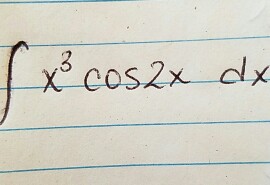 ∫ x³ cos2x dx